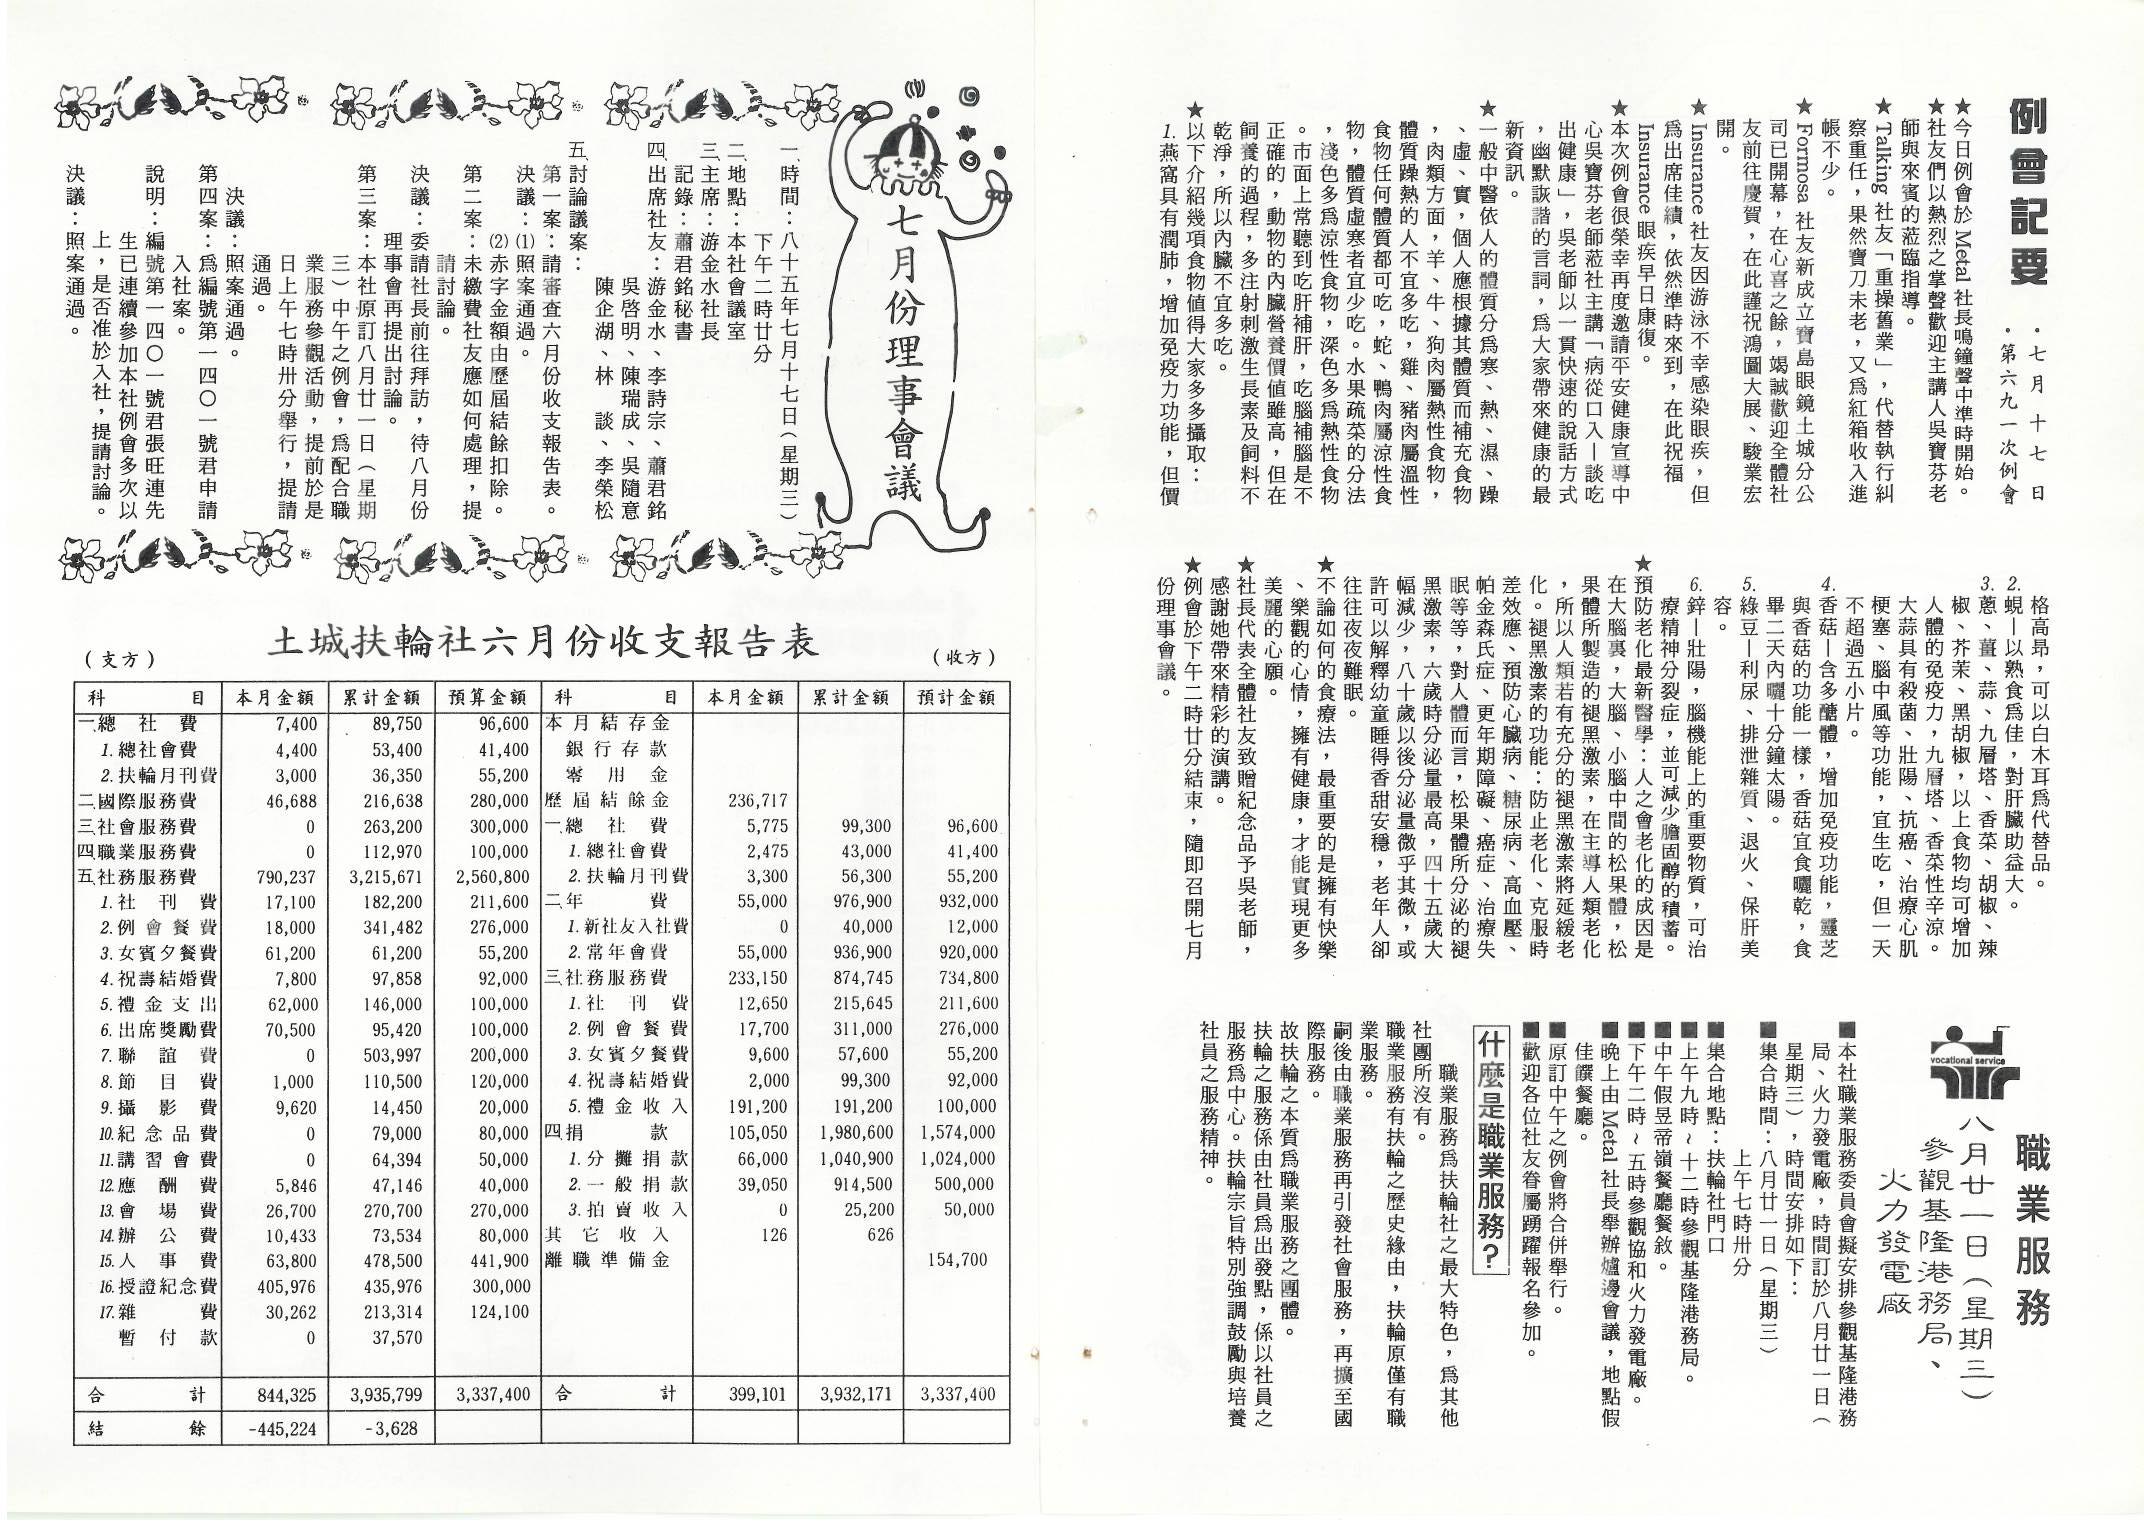 例會記要
．七月十七日
．第六九一次例會
★今日例會於 Metal 社長鳴鐘聲中準時開始。
★社友們以熱烈之掌聲歡迎主講人吳寶芬老
師與來賓的蒞臨指導。
★Talking 社友「重操舊業」，代替執行糾
察重任，果然寶刀未老，又為紅箱收入進
帳不少。
★Formosa 社友新成立寶島眼鏡土城分公
司已開幕，在心喜之餘，竭誠歡迎全體社
友前往慶賀，在此謹祝鴻圖大展、駿業宏
開。
★Insurance 社友因游泳不幸感染眼疾，但
為出席佳績，依然準時來到，在此祝福
Insurance 眼疾早日康復。
★本次例會很榮幸再度邀請平安健康宣導中
心吳寶芬老師蒞社主講「病從口入—談吃
出健康」，吳老師以一貫快速的說話方式
，幽默詼諧的言詞，為大家帶來健康的最
新資訊。
★一般中醫依人的體質分為寒、熱、濕、躁
、虛、實，個人應根據其體質而補充食物
，肉類方面，羊、牛、狗肉屬熱性食物，
體質躁熱的人不宜多吃，雞、豬肉屬溫性
食物任何體質都可吃，蛇、鴨肉屬涼性食
物，體質虛寒者宜少吃。水果疏菜的分法
，淺色多為涼性食物，深色多為熱性食物
。市面上常聽到吃肝補肝，吃腦補腦是不
正確的，動物的內臟營養價值雖高，但在
飼養的過程，多注射刺激生長素及飼料不
乾淨，所以內臟不宜多吃。
★以下介紹幾項食物值得大家多多攝取：
1.燕窩具有潤肺，增加免疫力功能，但價
格高昂，可以白木耳為代替品。
2.蜆—以熟食為佳，對肝臟助益大。
3.蔥、薑、蒜、九層塔、香菜、胡椒、辣
椒、芥茉、黑胡椒，以上食物均可增加
人體的免疫力，九層塔、香菜性辛涼。
大蒜具有殺菌、壯陽、抗癌、治療心肌
梗塞、腦中風等功能，宜生吃，但一天
不超過五小片。
4.香菇—含多醣體，增加免疫功能，靈芝
與香菇的功能一樣，香菇宜食曬乾，食
畢二天內曬十分鐘太陽。
5.綠豆—利尿、排泄雜質、退火、保肝美
容。
6.鋅—壯陽，腦機能上的重要物質，可治
療精神分裂症，並可減少膽固醇的積蓄。
★預防老化最新醫學：人之會老化的成因是
在大腦裏，大腦、小腦中間的松果體，松
果體所製造的褪黑激素，在主導人類老化
，所以人類若有充分的褪黑激素將延緩老
化。褪黑激素的功能：防止老化、克服時
差效應、預防心臟病、糖尿病、高血壓、
帕金森氏症、更年期障礙、癌症、治療失
眠等等，對人體而言，松果體所分泌的褪
黑激素，六歲時分泌量最高，四十五歲大
幅減少，八十歲以後分泌量微乎其微，或
許可以解釋幼童睡得香甜安穩，老年人卻
往往夜夜難眠。
★不論如何的食療法，最重要的是擁有快樂
、樂觀的心情，擁有健康，才能實現更多
美麗的心願。
★社長代表全體社友致贈紀念品予吳老師，
感謝她帶來精彩的演講。
★例會於下午二時廿分結束，隨即召開七月
份理事會議。
vocational service
職業服務
八月廿一日（星期三）
參觀基隆港務局、
火力發電廠
■本社職業服務委員會擬安排參觀基隆港務
局、火力發電廠，時間訂於八月廿一日（
星期三），時間安排如下：
■集合時間：八月廿一日（星期三）
上午七時卅分
■集合地點：扶輪社門口
■上午九時～十二時參觀基隆港務局。
■中午假昱帝嶺餐廳餐敘。
■下午二時～五時參觀協和火力發電廠。
■晚上由 Metal 社長舉辦爐邊會議，地點假
佳饌餐廳。
■原訂中午之例會將合併舉行。
■歡迎各位社友眷屬踴躍報名參加。
什麼是職業服務？
職業服務為扶輪社之最大特色，為其他
社團所沒有。
職業服務有扶輪之歷史緣由，扶輪原僅有職
業服務。
嗣後由職業服務再引發社會服務，再擴至國
際服務。
故扶輪之本質為職業服務之團體。
扶輪之服務係由社員為出發點，係以社員之
服務為中心。扶輪宗旨特別強調鼓勵與培養
社員之服務精神。
七月份理事會議
一、時間：八十五年七月十七日（星期三）
下午二時廿分
二、地點：本社會議室
三、主席：游金水社長
記錄：蕭君銘秘書
四、出席社友：游金水、李詩宗、蕭君銘
吳啓明、陳瑞成、吳隨意
陳企湖、林　談、李榮松
五、討論議案：
第一案：請審查六月份收支報告表。
決議：(1)照案通過。
(2)赤字金額由歷屆結餘扣除。
第二案：未繳費社友應如何處理，提
請討論。
決議：委請社長前往拜訪，待八月份
理事會再提出討論。
第三案：本社原訂八月廿一日（星期
三）中午之例會，為配合職
業服務參觀活動，提前於是
日上午七時卅分舉行，提請
通過。
決議：照案通過。
第四案：為編號第一四〇一號君申請
入社案。
說明：編號第一四〇一號君張旺連先
生已連續參加本社例會多次以
上，是否准於入社，提請討論。
決議：照案通過。
土城扶輪社六月份收支報告表
（支方）　（收方）
科　目　本月金額　累計金額　預算金額　科　目　本月金額　累計金額　預計金額
一.總社費　7,400　89,750　96,600　本月結存金
1.總社會費　4,400　53,400　41,400　銀行存款
2.扶輪月刊費　3,000　36,350　55,200　零用金
二.國際服務費　46,688　216,638　280,000　歷屆結餘金　236,717
三.社會服務費　0　263,200　300,000　一.總社費　5,775　99,300　96,600
四.職業服務費　0　112,970　100,000　1.總社會費　2,475　43,000　41,400
五.社務服務費　790,237　3,215,671　2,560,800　2.扶輪月刊費　3,300　56,300　55,200
1.社刊費　17,100　182,200　211,600　二.年費　55,000　976,900　932,000
2.例會餐費　18,000　341,482　276,000　1.新社友入社費　0　40,000　12,000
3.女賓夕餐費　61,200　61,200　55,200　2.常年會費　55,000　936,900　920,000
4.祝壽結婚費　7,800　97,858　92,000　三.社務服務費　233,150　874,745　734,800
5.禮金支出　62,000　146,000　100,000　1.社刊費　12,650　215,645　211,600
6.出席獎勵費　70,500　95,420　100,000　2.例會餐費　17,700　311,000　276,000
7.聯誼費　0　503,997　200,000　3.女賓夕餐費　9,600　57,600　55,200
8.節目費　1,000　110,500　120,000　4.祝壽結婚費　2,000　99,300　92,000
9.攝影費　9,620　14,450　20,000　5.禮金收入　191,200　191,200　100,000
10.紀念品費　0　79,000　80,000　四.捐款　105,050　1,980,600　1,574,000
11.講習會費　0　64,394　50,000　1.分攤捐款　66,000　1,040,900　1,024,000
12.應酬費　5,846　47,146　40,000　2.一般捐款　39,050　914,500　500,000
13.會場費　26,700　270,700　270,000　3.拍賣收入　0　25,200　50,000
14.辦公費　10,433　73,534　80,000　其它收入　126　626
15.人事費　63,800　478,500　441,900　離職準備金　154,700
16.授證紀念費　405,976　435,976　300,000
17.雜費　30,262　213,314　124,100
暫付款　0　37,570
合計　844,325　3,935,799　3,337,400　合計　399,101　3,932,171　3,337,400
結餘　-445,224　-3,628